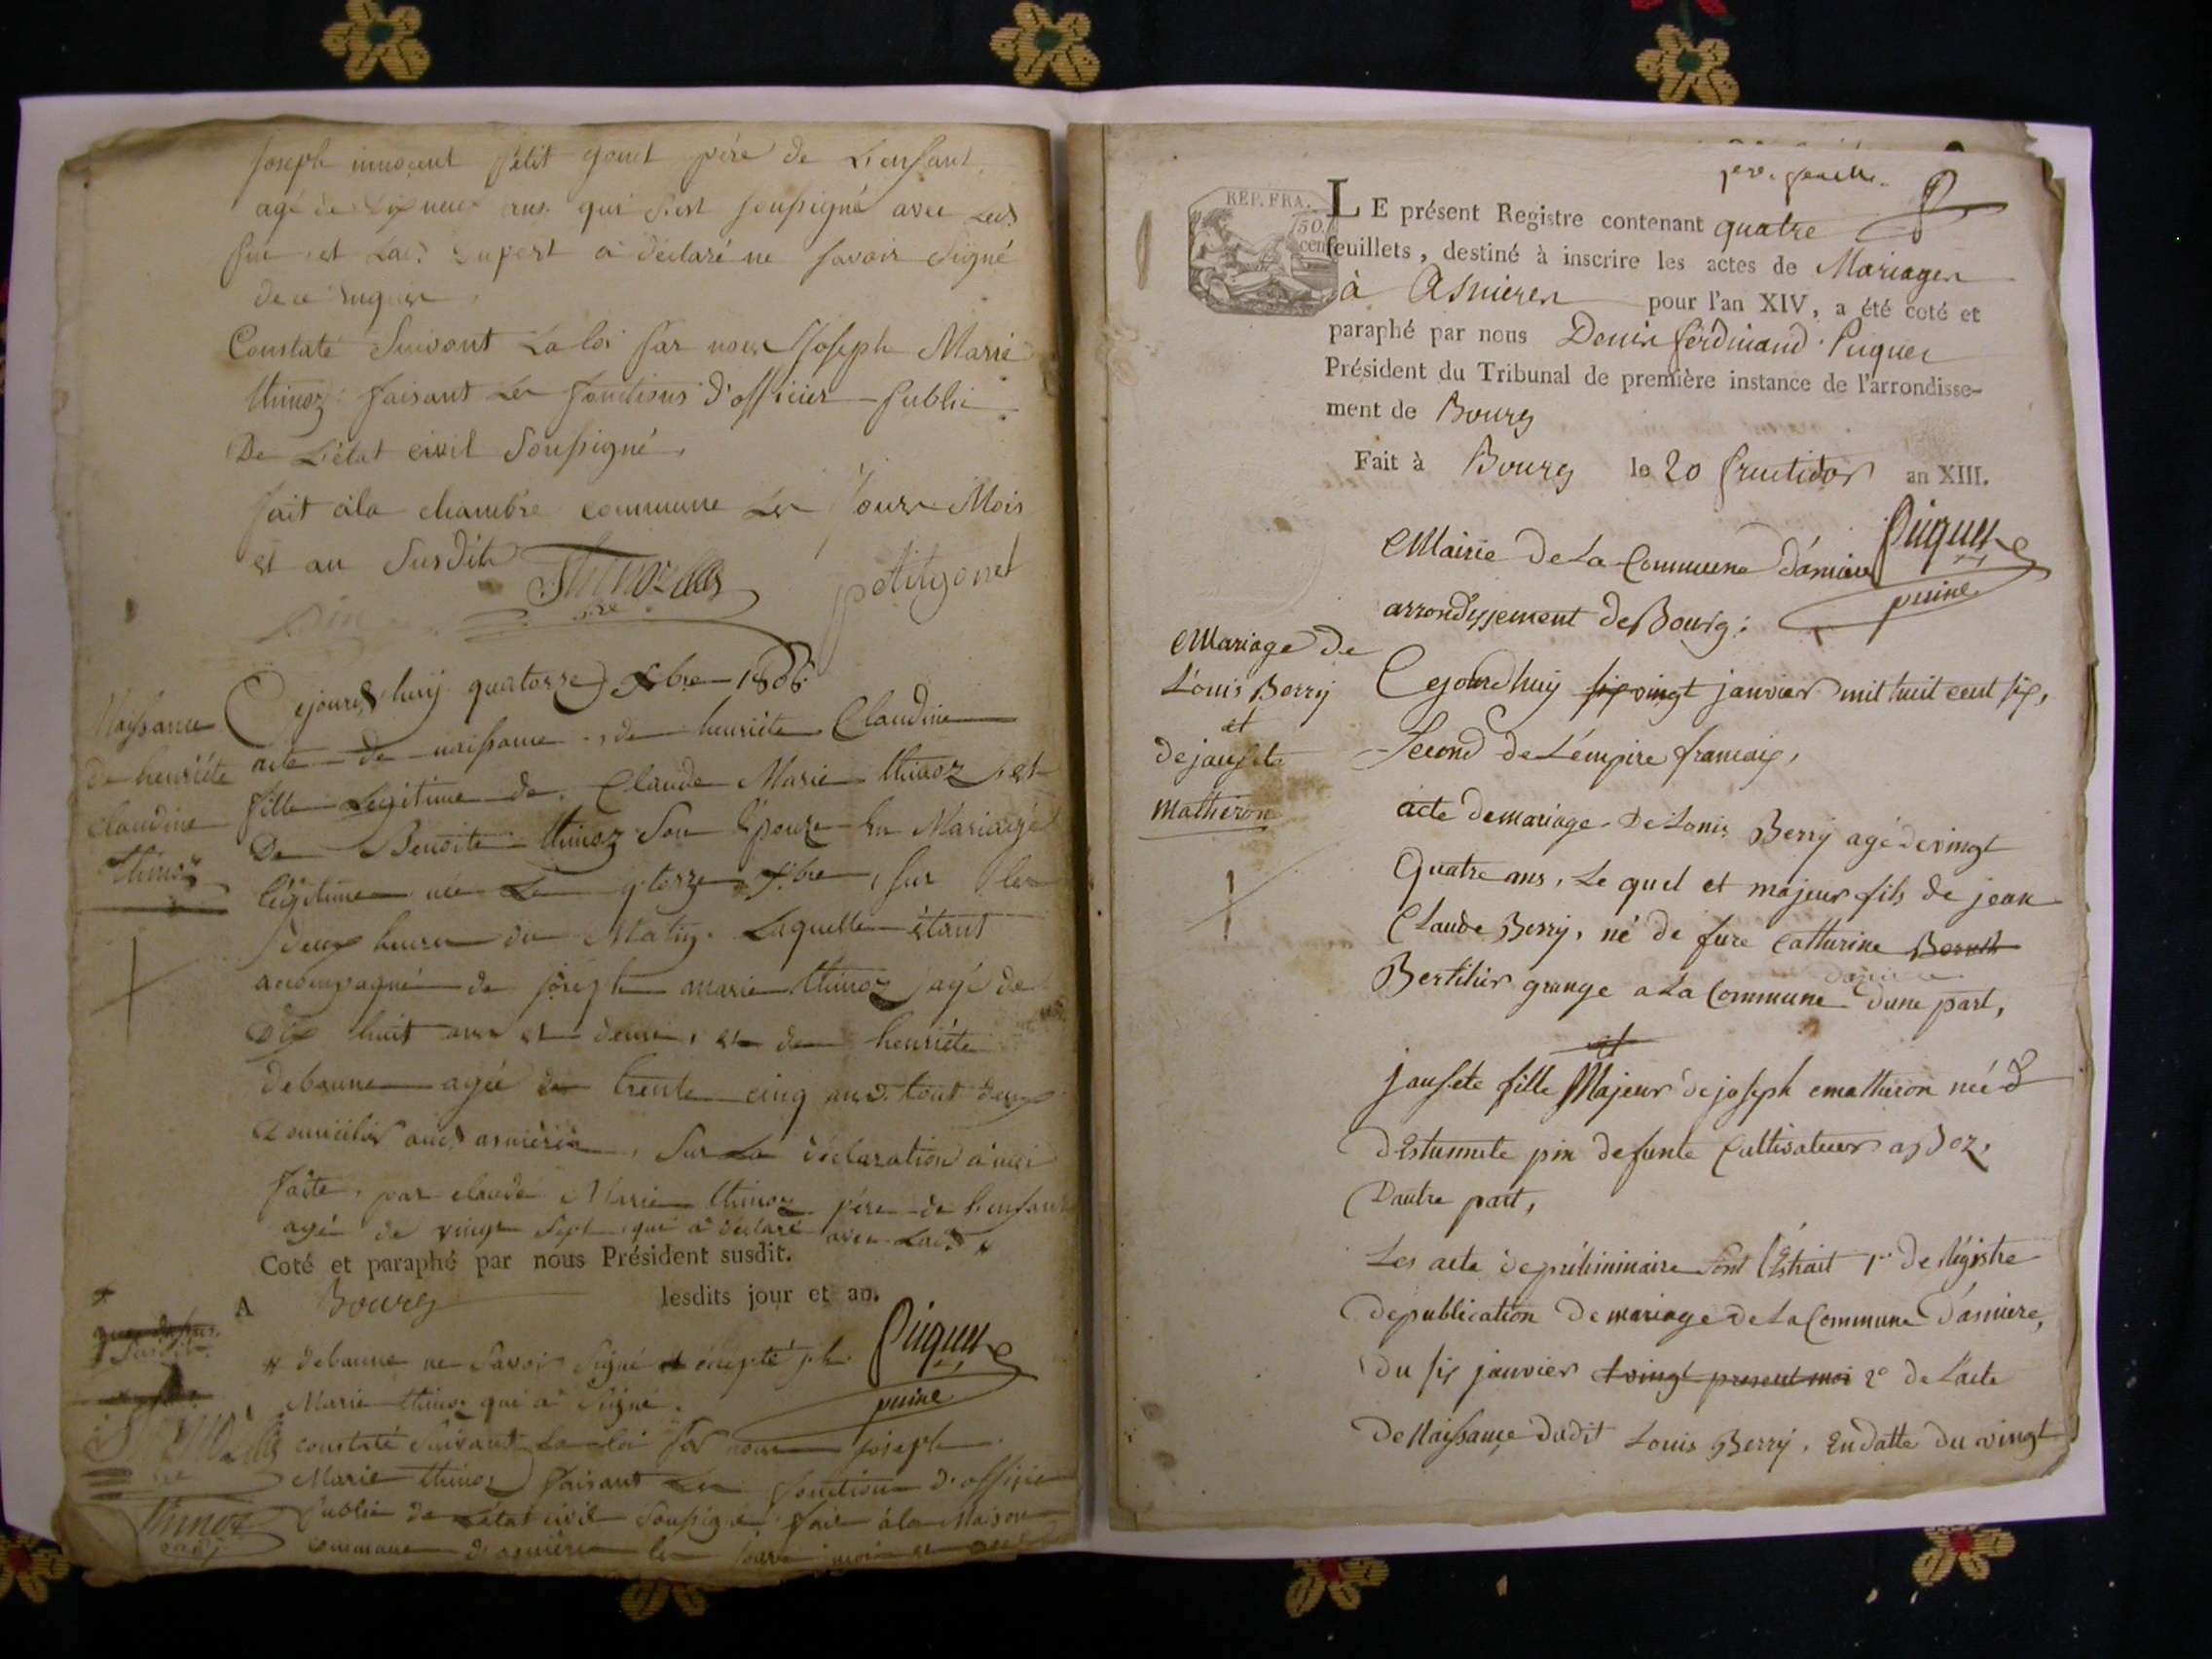 Joseph innocent petit gonet père de L'enfant
agé de dix neuf ans qui s'est soussigné avec Led.
pin et Lad. Dupert a déclaré ne savoir Signé
de ce enquis
Constaté Suivant La loi par nous Joseph Marie
thinoz faisant Les fonctions d'officier public
De L'état civil Soussigné,
fait àla chambre commune Les Jours Mois
et an Susdits
petitgonet
pin
Naissance
de henriéte
claudine
thinoz
Cejourd'huy quatorze xbre 1806
acte de naissance de henriéte Claudine
fille Légitime de Claude Marie thinoz et
De Benoite thinoz Son Epouze En Mariage
légitime née Le qtorze xbre, sur les
deux heures du Matin. Laquelle étant
accompagné de joseph marie thinoz agé de
Dix huit ans et demi, et de henriéte
debaune agée de trente cinq ans tout deux
Domiciliés aud. asnières, Sur La déclaration à moi
faite, par claude Marie thinoz père de L'enfant
agé de vingt Sept, qui a déclaré avec Lad. *
Coté et paraphé par nous Président susdit.
A Bourg lesdits jour et an.
* debaune ne Savoir Signé et excepté jph
Marie thinoz qui a Signé.
Puguet
puiné
constaté Suivant La loi par nous joseph
Marie thinoz faisant Les fonction d'officier
Public de L'état civil Soussigné, fait àla Maison
commune d'asnières les jours moi et an
thinoz
1ere. feuille.
REP. FRA.
50.
cen.
LE présent Registre contenant quatre
feuillets, destiné à inscrire les actes de Mariages
à Asnieres pour l'an XIV, a été coté et
paraphé par nous Denis ferdinand Puguet
Président du Tribunal de première instance de l'arrondisse-
ment de Bourg
Fait à Bourg le 20 fructidor an XIII.
Puguet
puiné
Mairie de La Commune d'aniere
arrondissement de Bourg:
Mariage de
Louis Berry
et
de jausete
matheron
Cejourdhuy six vingt janvier mil huit cent six,
Second de L'émpire francaix,
acte de mariage De Louis Berry agé de vingt
Quatre ans, Le quel et majeur fils de jean
Claude Berry, né de fure Catturine
Bertilier grange a La Commune dune part,
et
jausete fille Majeur de joseph ematheron né d
d'Estunnete pin defunte Cultivateur a Boz,
D'autre part,
Les acte de préliminaire Sont L'Estrait 1er de Régistre
de publication de mariage de La Commune D'asniere,
du six janvier et vingt present moi 2e de L'acte
de Naissance dudit Louis Berry, En datte du vingt